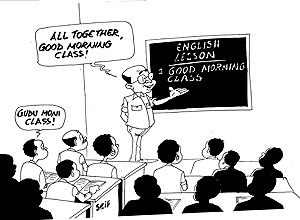 ALL TOGETHER,
GOOD MORNING
CLASS!
ENGLISH
LESSON
1 GOOD MORNING
CLASS
GUDU MONI
CLASS!
SEIF